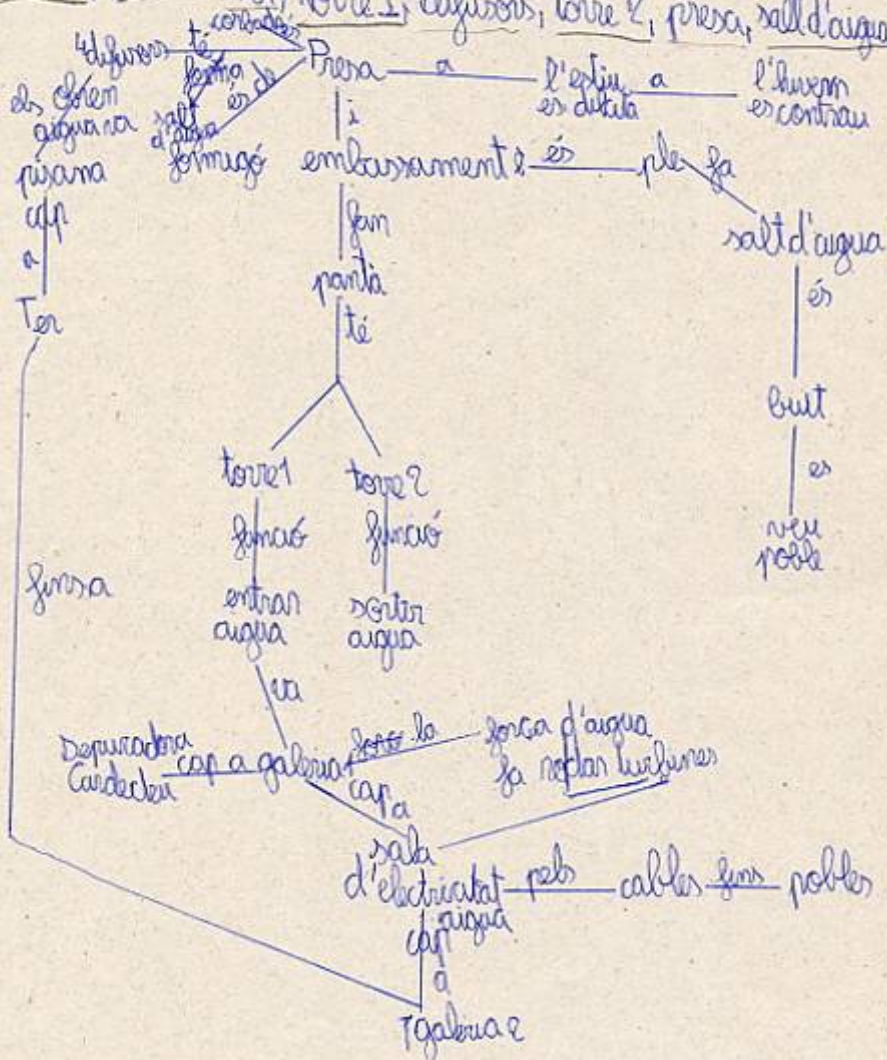 torre 1, difusors, torre 2, presa, salt d'aigua
4 difusors té Presa a l'estiu a l'hivern
es dilata es contrau
forma és de
els obren
salt
d'aigua
formigó
pisana
cap
a
Ter
i
embassament és ple fa
salt d'aigua
fan
pantà
té
és
buit
es
veu
poble
torre 1 torre 2
funció funció
entrar
aigua
sortir
aigua
fins a
va
Depuradora
Cardedeu
cap a galeria 1 la força d'aigua
fa rodar turbines
cap a
sala
d'electricitat pels cables fins pobles
aigua
cap
a
galeria 2